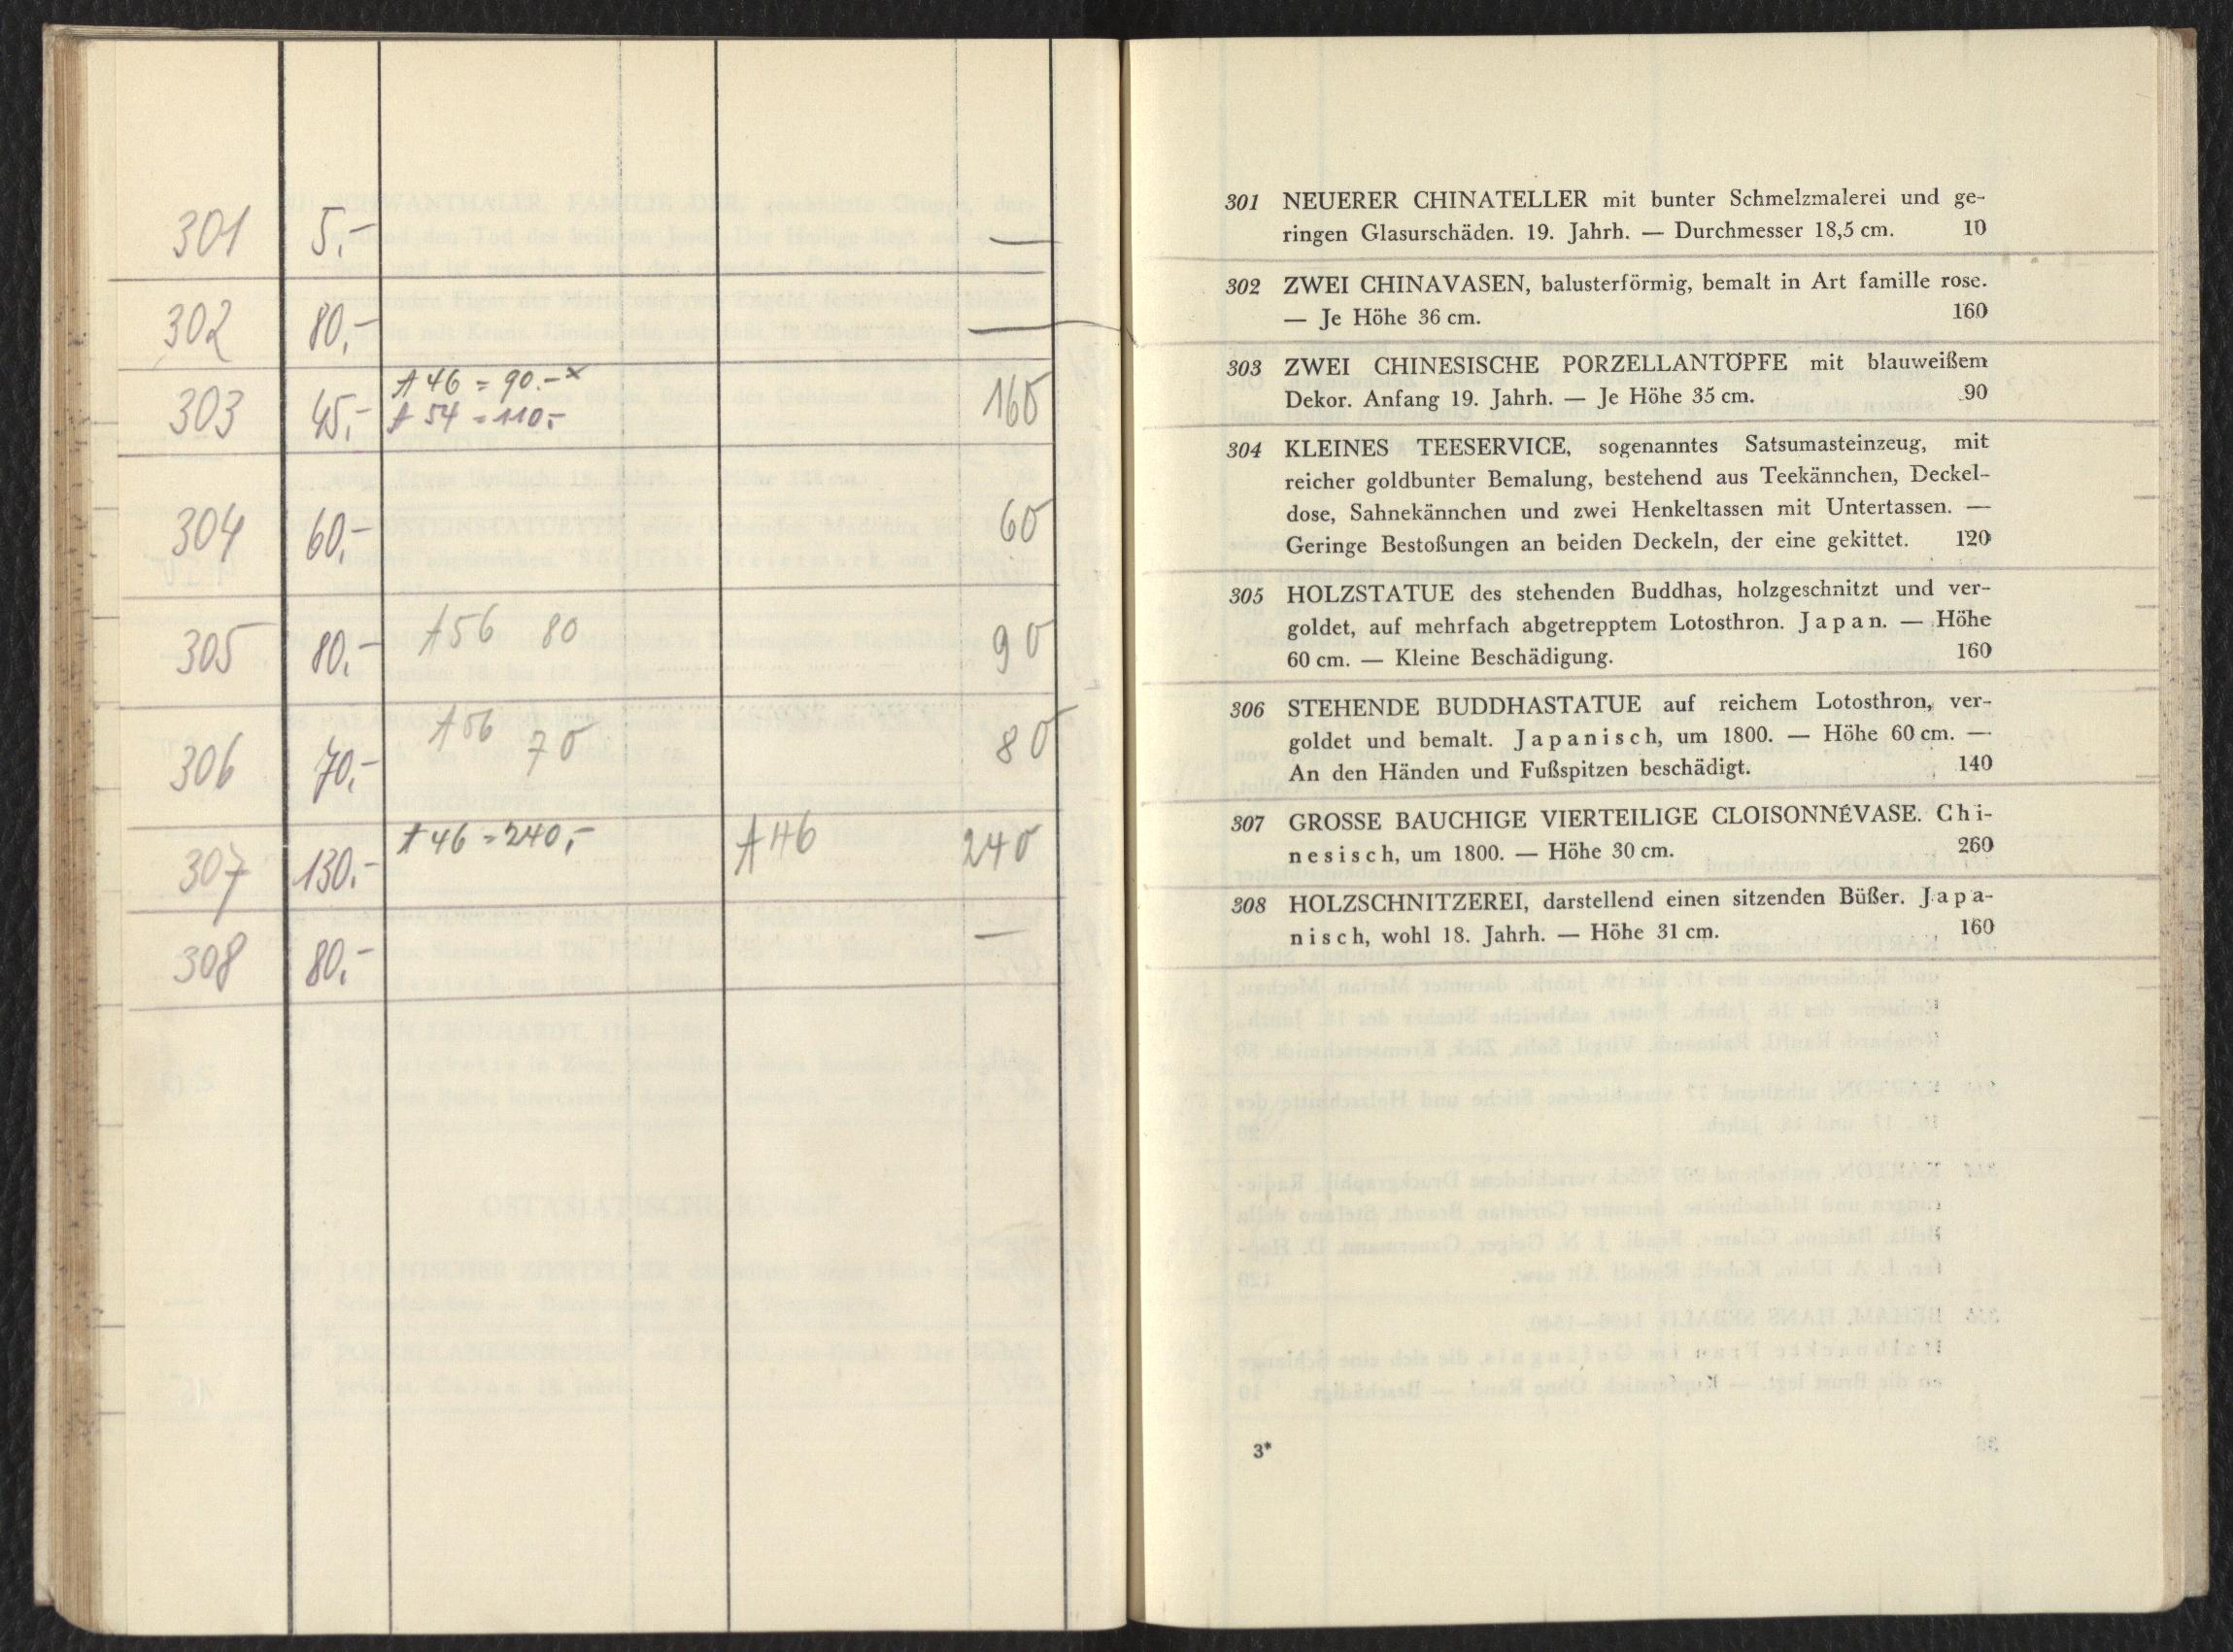 301 5,- —
302 80,- —
303 45,- A 46 = 90.-x 160
A 54 = 110,-
304 60,- 60
305 80,- A56 80 90
306 70,- A56 70 80
307 130,- A 46 = 240,- A46 240
308 80,- —
301 NEUERER CHINATELLER mit bunter Schmelzmalerei und ge-
ringen Glasurschäden. 19. Jahrh. — Durchmesser 18,5 cm. 10
302 ZWEI CHINAVASEN, balusterförmig, bemalt in Art famille rose.
— Je Höhe 36 cm. 160
303 ZWEI CHINESISCHE PORZELLANTÖPFE mit blauweißem
Dekor. Anfang 19. Jahrh. — Je Höhe 35 cm. 90
304 KLEINES TEESERVICE, sogenanntes Satsumasteinzeug, mit
reicher goldbunter Bemalung, bestehend aus Teekännchen, Deckel-
dose, Sahnekännchen und zwei Henkeltassen mit Untertassen. —
Geringe Bestoßungen an beiden Deckeln, der eine gekittet. 120
305 HOLZSTATUE des stehenden Buddhas, holzgeschnitzt und ver-
goldet, auf mehrfach abgetrepptem Lotosthron. Japan. — Höhe
60 cm. — Kleine Beschädigung. 160
306 STEHENDE BUDDHASTATUE auf reichem Lotosthron, ver-
goldet und bemalt. Japanisch, um 1800. — Höhe 60 cm. —
An den Händen und Fußspitzen beschädigt. 140
307 GROSSE BAUCHIGE VIERTEILIGE CLOISONNÉVASE. Chi-
nesisch, um 1800. — Höhe 30 cm. 260
308 HOLZSCHNITZEREI, darstellend einen sitzenden Büßer. Japa-
nisch, wohl 18. Jahrh. — Höhe 31 cm. 160
3*